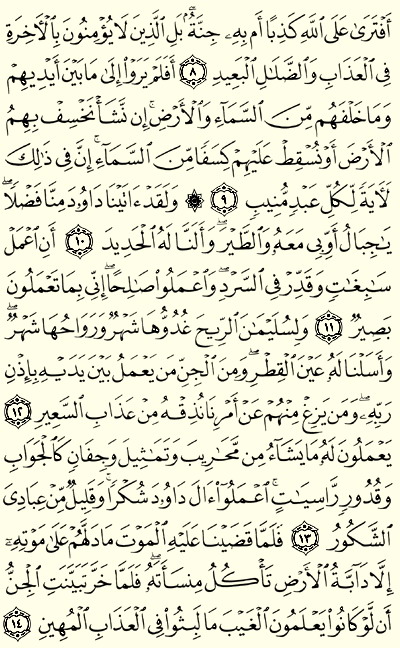 أَفْتَرَىٰ عَلَى اللَّهِ كَذِبًا أَم بِهِۦ جِنَّةٌۢ ۗ بَلِ الَّذِينَ لَا يُؤْمِنُونَ بِالْأَخِرَةِ
فِى الْعَذَابِ وَالضَّلَٰلِ الْبَعِيدِ ٨ أَفَلَمْ يَرَوْا۟ إِلَىٰ مَا بَيْنَ أَيْدِيهِمْ
وَمَا خَلْفَهُم مِّنَ السَّمَآءِ وَالْأَرْضِ ۚ إِن نَّشَأْ نَخْسِفْ بِهِمُ
الْأَرْضَ أَوْ نُسْقِطْ عَلَيْهِمْ كِسَفًا مِّنَ السَّمَآءِ ۚ إِنَّ فِى ذَٰلِكَ
لَءَايَةً لِّكُلِّ عَبْدٍ مُّنِيبٍ ٩ ۞ وَلَقَدْ ءَاتَيْنَا دَاوُۥدَ مِنَّا فَضْلًا ۖ
يَٰجِبَالُ أَوِّبِى مَعَهُۥ وَالطَّيْرَ ۖ وَأَلَنَّا لَهُ الْحَدِيدَ ١٠ أَنِ اعْمَلْ
سَٰبِغَٰتٍ وَقَدِّرْ فِى السَّرْدِ ۖ وَاعْمَلُوا۟ صَٰلِحًا ۖ إِنِّى بِمَا تَعْمَلُونَ
بَصِيرٌ ١١ وَلِسُلَيْمَٰنَ الرِّيحَ غُدُوُّهَا شَهْرٌ وَرَوَاحُهَا شَهْرٌ ۖ
وَأَسَلْنَا لَهُۥ عَيْنَ الْقِطْرِ ۖ وَمِنَ الْجِنِّ مَن يَعْمَلُ بَيْنَ يَدَيْهِ بِإِذْنِ
رَبِّهِۦ ۖ وَمَن يَزِغْ مِنْهُمْ عَنْ أَمْرِنَا نُذِقْهُ مِنْ عَذَابِ السَّعِيرِ ١٢
يَعْمَلُونَ لَهُۥ مَا يَشَآءُ مِن مَّحَٰرِيبَ وَتَمَٰثِيلَ وَجِفَانٍ كَالْجَوَابِ
وَقُدُورٍ رَّاسِيَٰتٍ ۚ اعْمَلُوٓا۟ ءَالَ دَاوُۥدَ شُكْرًا ۚ وَقَلِيلٌ مِّنْ عِبَادِىَ
الشَّكُورُ ١٣ فَلَمَّا قَضَيْنَا عَلَيْهِ الْمَوْتَ مَا دَلَّهُمْ عَلَىٰ مَوْتِهِۦٓ
إِلَّا دَآبَّةُ الْأَرْضِ تَأْكُلُ مِنسَأَتَهُۥ ۖ فَلَمَّا خَرَّ تَبَيَّنَتِ الْجِنُّ
أَن لَّوْ كَانُوا۟ يَعْلَمُونَ الْغَيْبَ مَا لَبِثُوا۟ فِى الْعَذَابِ الْمُهِينِ ١٤